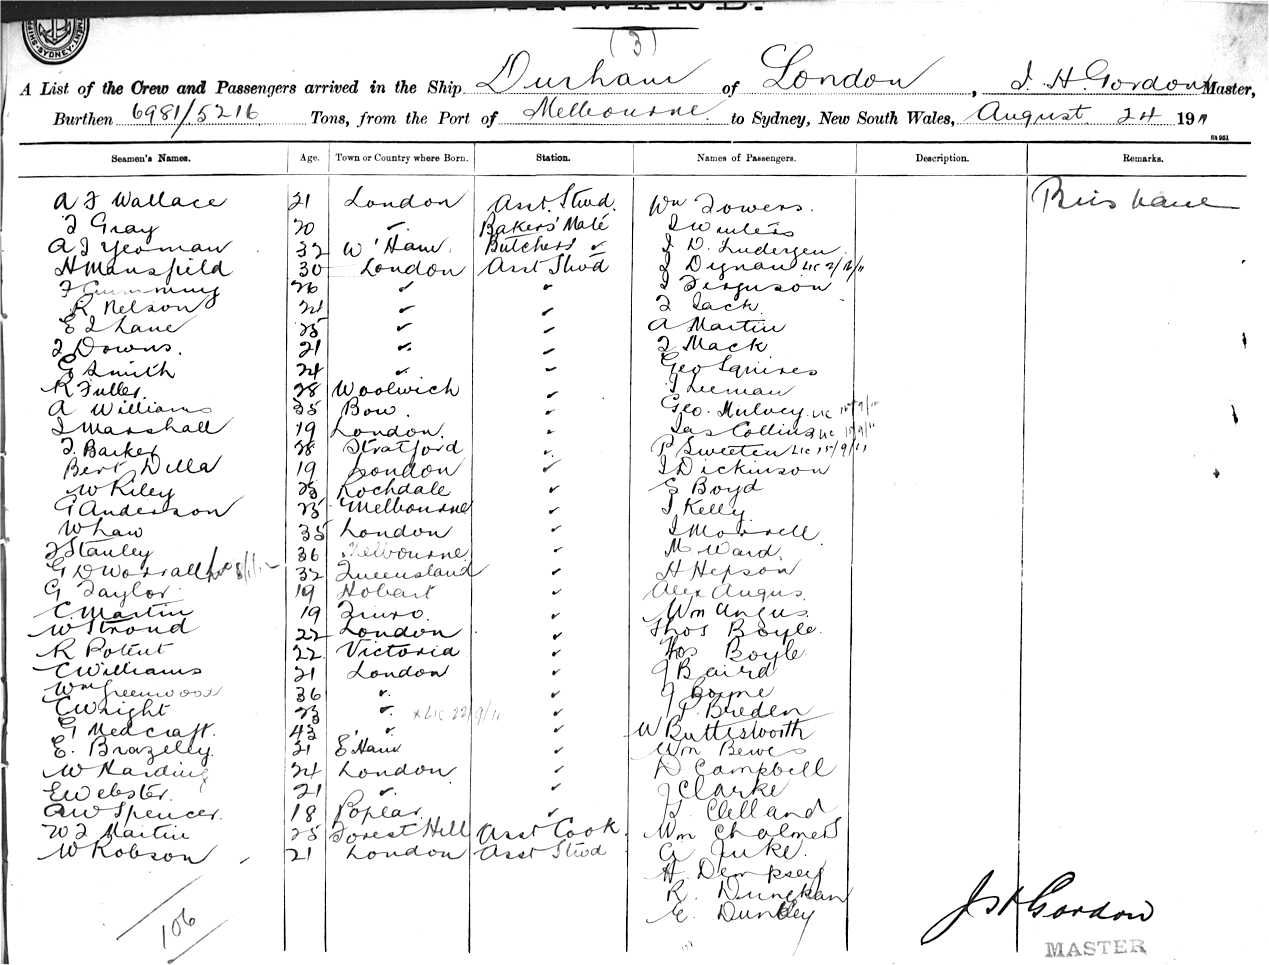 (3)
A List of the Crew and Passengers arrived in the Ship Durham of London, J. H. Gordon Master,
Burthen 6981/5216 Tons, from the Port of Melbourne to Sydney, New South Wales, August 24 191
Seamen's Names. Age. Town or Country where Born. Station. Names of Passengers. Description. Remarks.
A J Wallace 21 London Asst. Stwd. Wm Towers. Brisbane
J Gray 20 ✓ Bakers' Mate
A J Yeoman 32 W'Ham. Butchers ✓ J D. Ludergen
H Mansfield 30 London Asst Stwd J Dignan Lic 2/12/11
J Cumming 26 ✓ ✓ J Ferguson
R Nelson 21 ✓ ✓ J Jack
E J Lane 25 ✓ ✓ A Martin
J Downs. 21 ✓ ✓ J Mack
G Smith 24 ✓ ✓ Geo Squires
R Fuller. 28 Woolwich ✓ J Leeman
A Williams 35 Bow. ✓ Geo. Mulvey Lic 15/9/11
J Marshall 19 London. ✓ Jas Collins Lic 15/9/11
J. Barker 28 Stratford ✓ P Sweeten Lic 15/9/11
Bert Della 19 London ✓ J Dickinson
W Riley 23 Rochdale ✓ E Boyd
G Anderson 25 Melbourne ✓ J Kelly
W Law 35 London ✓ J Morrell
J Stanley 36 Melbourne ✓ M Ward.
G D Worrall 32 Queensland ✓ H Hepson
G Taylor 19 Hobart ✓ Alex Angus.
C. Martin 19 Truro. ✓ Wm Angus.
W Stroud 22 London ✓ Thos Boyle.
R Potent 22 Victoria ✓ Thos Boyle
C Williams 21 London ✓ J Baird
Wm Greenwood 36 ✓ ✓ J Boyne
C Wright 23 ✓ x Lic 22/9/11 ✓ P. Breden
G Medcraft. 43 ✓ ✓ W Buttisworth
E. Brazelly. 21 E'Ham ✓ Wm Bewes
W Harding 24 London ✓ D Campbell
E Webster. 21 ✓ ✓ J Clarke
A W Spencer. 18 Poplar. ✓ J. Clelland
W J Martin 25 Forest Hill Asst Cook. Wm Chalmers
W Robson 21 London Asst Stwd G Juke.
H. Dempsey
R. Dungkan
E. Dunkley
106
J H Gordon
MASTER